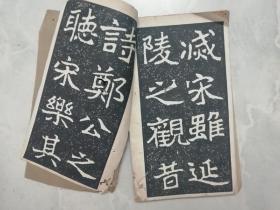 滅宋雖延
陵之觀昔
詩鄭公之
聽宋樂其